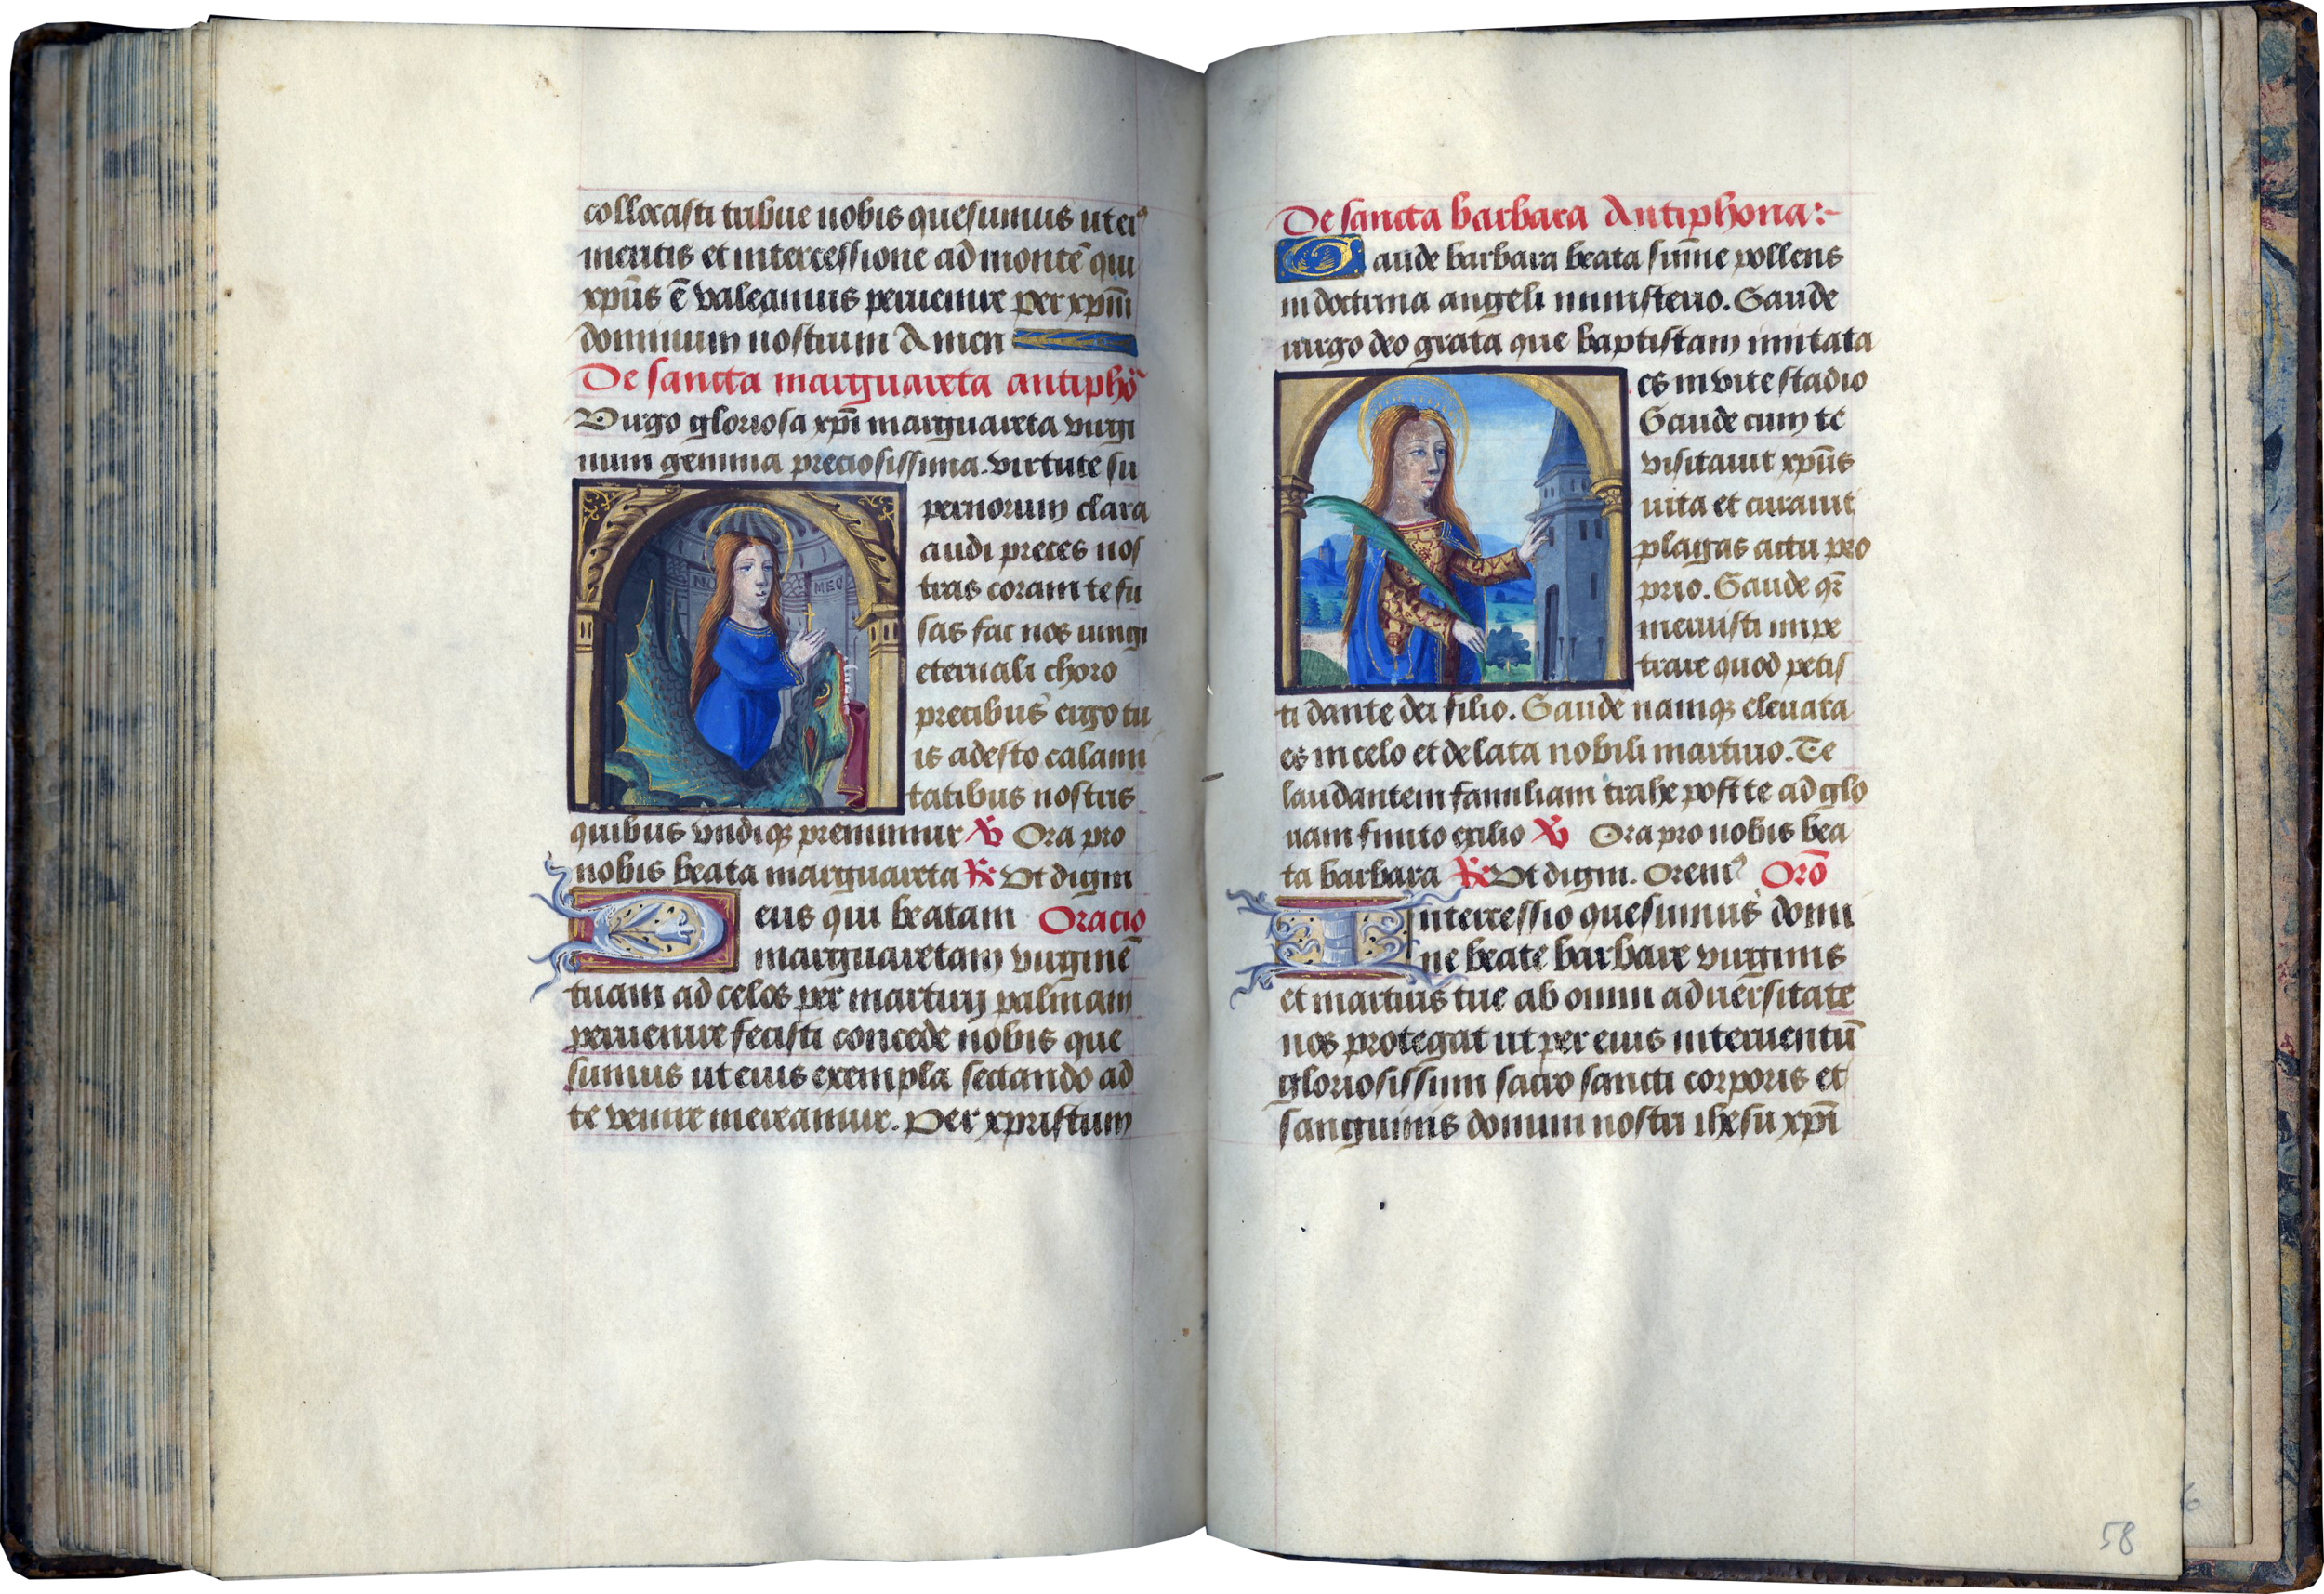 collocasti tribue nobis quesumus ut eiꝰ
meritis et intercessione ad montē qui
xp̄us ē valeamus peruenire per xp̄m
dominum nostrum Amen
De sancta marguareta antiphōˉ
Virgo gloriosa xp̄i marguareta virgi
num gemma preciosissima. virtute su
pernorum clara
audi preces nos
tras coram te fu
sas fac nos iungi
eternali choro
precibus ergo tu
is adesto calami
tatibus nostris
quibus vndiqꝫ premimur ℣ Ora pro
nobis beata marguareta ℟ Vt digni
Deus qui beatam Oracio
marguaretam virginē
tuam ad celos per martirij palmam
peruenire fecisti concede nobis que
sumus ut eius exempla sectando ad
te venire mereamur. Per xpristum
De sancta barbara Antiphona:~
Gaude barbara beata sum̄e pollens
in doctrina angeli ministerio. Gaude
uirgo deo grata que baptistam imitata
es in vite stadio
Gaude cum te
visitauit xp̄us
uita et curauit
plagas actu pro
prio. Gaude qr̄
meruisti impe
trare quod petis
ti dante dei filio. Gaude namqꝫ eleuata
es in celo et delata nobili martirio. Te
laudantem familiam trahe post te ad glo
riam finito exilio ℣ Ora pro nobis bea
ta barbara ℟ Vt digni. Oremꝰ Orō
Intercessio quesumus domi
ne beate barbare virginis
et martiris tue ab omni aduersitate
nos protegat ut per eius interuentū
gloriosissim sacro sancti corporis et
sanguinis domini nostri ihesu xp̄i
58